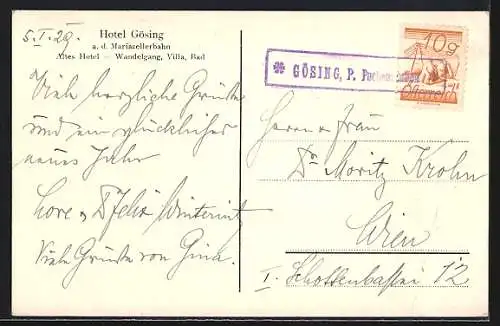 5.I.29.
Hotel Gösing
a. d. Mariazellerbahn
Altes Hotel – Wandelgang, Villa, Bad
Viele herzliche Grüße
und ein glückliches
neues Jahr
Lore & Dr Felix Winternitz
Viele Grüße von Gina.
10g
Österreich
GÖSING, P.
Herrn u Frau
Dr Moritz Krohn
Wien
I. Schottenbastei 12